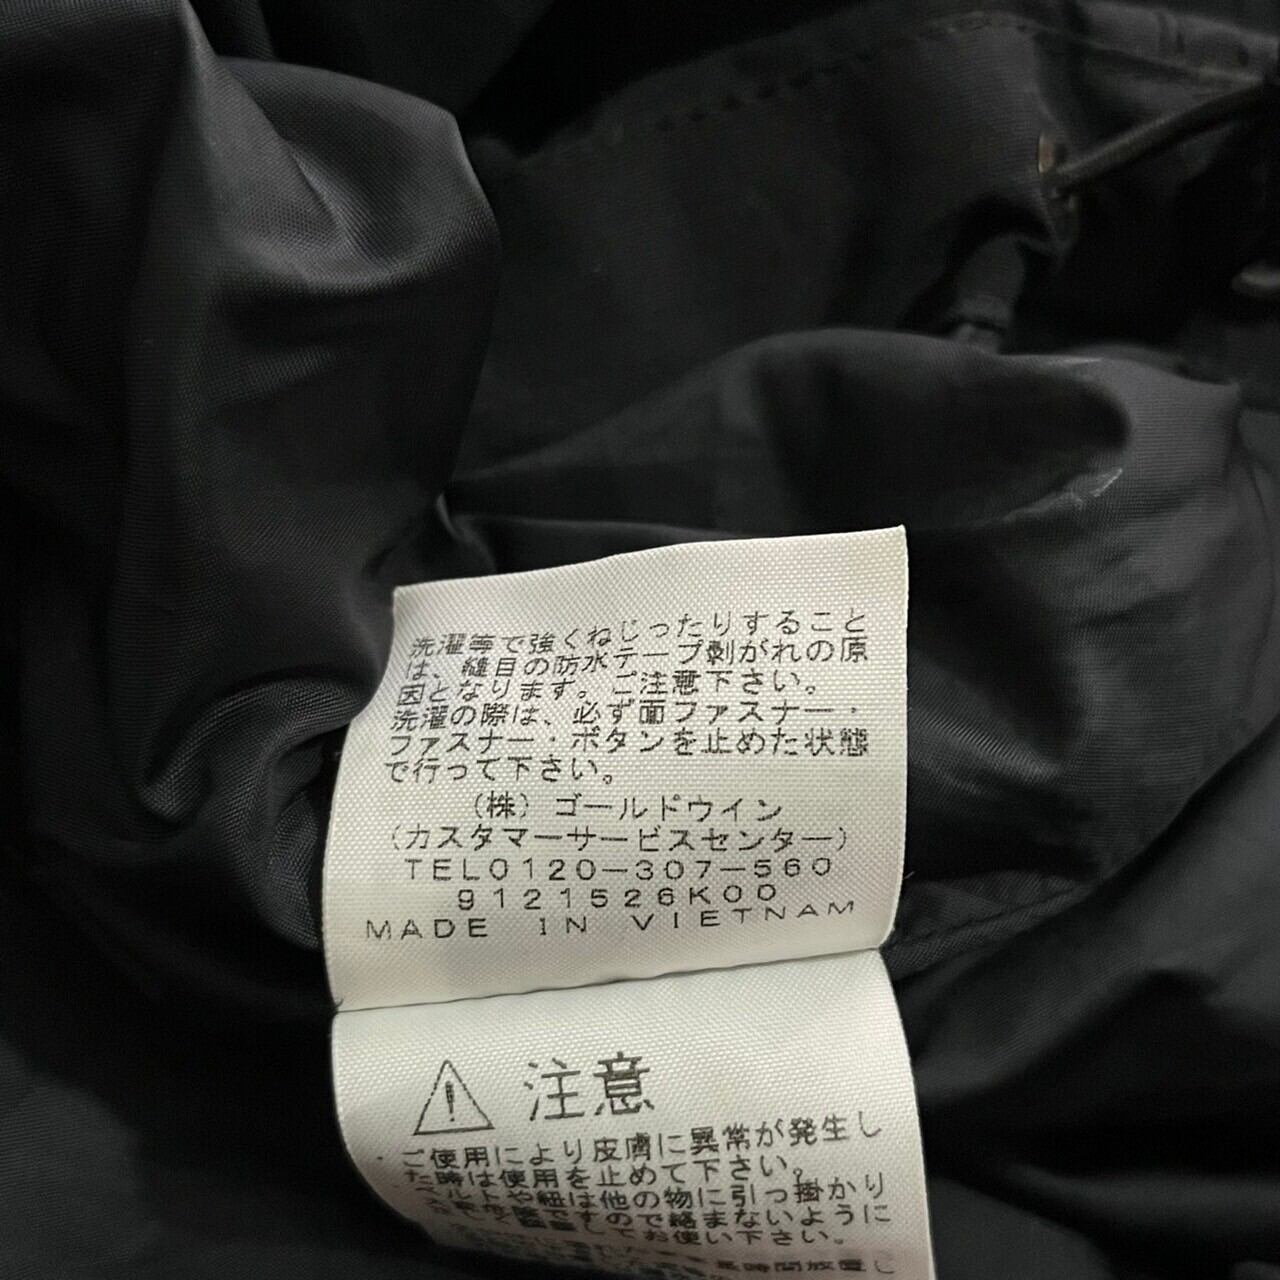 洗濯等で強くねじったりすること
は、縫目の防水テープ剥がれの原
因となります。ご注意下さい。
洗濯の際は、必ず面ファスナー・
ファスナー・ボタンを止めた状態
で行って下さい。
(株)ゴールドウイン
(カスタマーサービスセンター)
TEL0120-307-560
9121526K00
MADE IN VIETNAM
注意
ご使用により皮膚に異常が発生し
た時は使用を止めて下さい。
ベルトや紐は他の物に引っ掛かり
ですので絡まないように
してお使い下さい。
長時間放置し